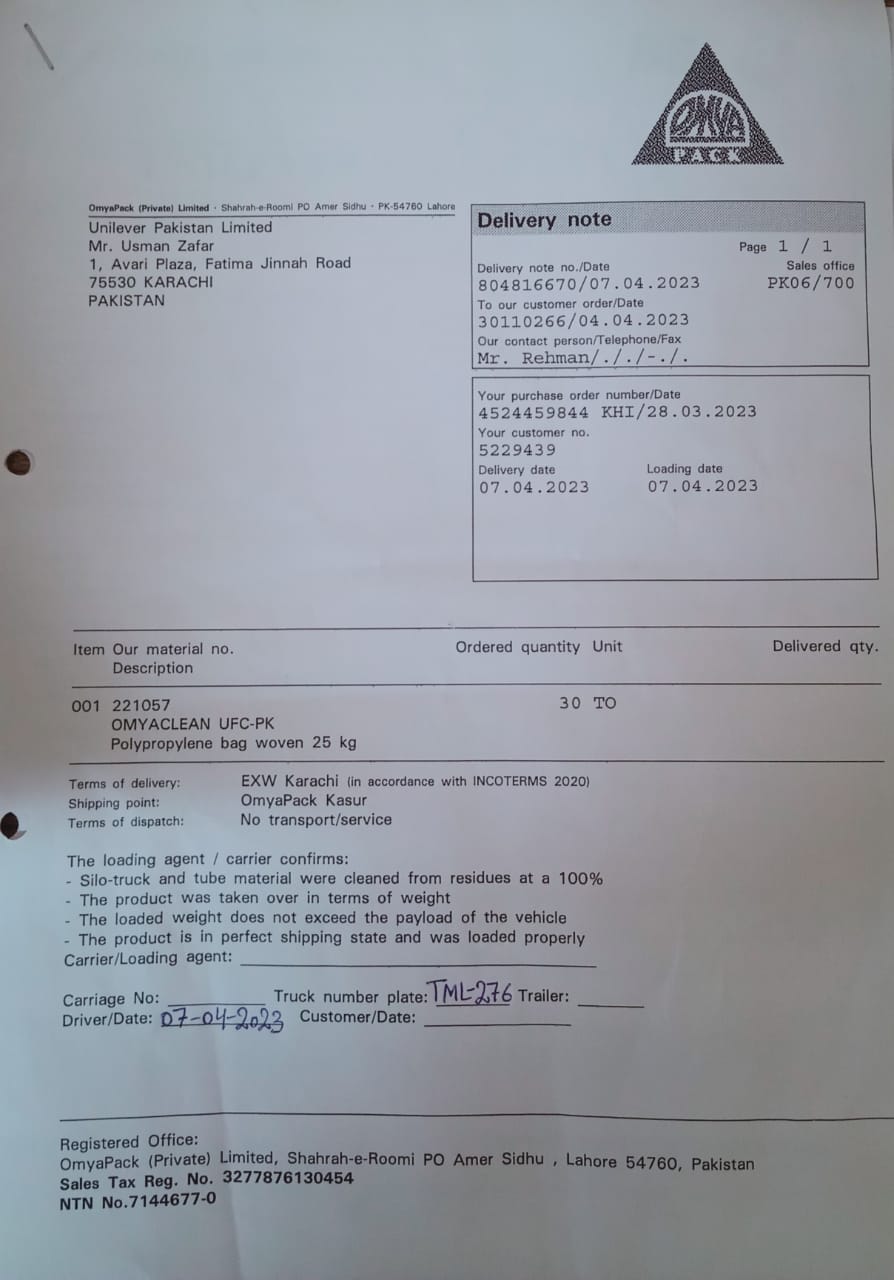 OMYA
PACK
OmyaPack (Private) Limited · Shahrah-e-Roomi PO Amer Sidhu · PK-54760 Lahore
Unilever Pakistan Limited
Mr. Usman Zafar
1, Avari Plaza, Fatima Jinnah Road
75530 KARACHI
PAKISTAN
Delivery note
Page 1 / 1
Delivery note no./Date Sales office
804816670/07.04.2023 PK06/700
To our customer order/Date
30110266/04.04.2023
Our contact person/Telephone/Fax
Mr. Rehman/././-./.
Your purchase order number/Date
4524459844 KHI/28.03.2023
Your customer no.
5229439
Delivery date Loading date
07.04.2023 07.04.2023
Item Our material no. Ordered quantity Unit Delivered qty.
Description
001 221057 30 TO
OMYACLEAN UFC-PK
Polypropylene bag woven 25 kg
Terms of delivery: EXW Karachi (in accordance with INCOTERMS 2020)
Shipping point: OmyaPack Kasur
Terms of dispatch: No transport/service
The loading agent / carrier confirms:
- Silo-truck and tube material were cleaned from residues at a 100%
- The product was taken over in terms of weight
- The loaded weight does not exceed the payload of the vehicle
- The product is in perfect shipping state and was loaded properly
Carrier/Loading agent:
Carriage No: Truck number plate: TML-276 Trailer:
Driver/Date: 07-04-2023 Customer/Date:
Registered Office:
OmyaPack (Private) Limited, Shahrah-e-Roomi PO Amer Sidhu , Lahore 54760, Pakistan
Sales Tax Reg. No. 3277876130454
NTN No.7144677-0